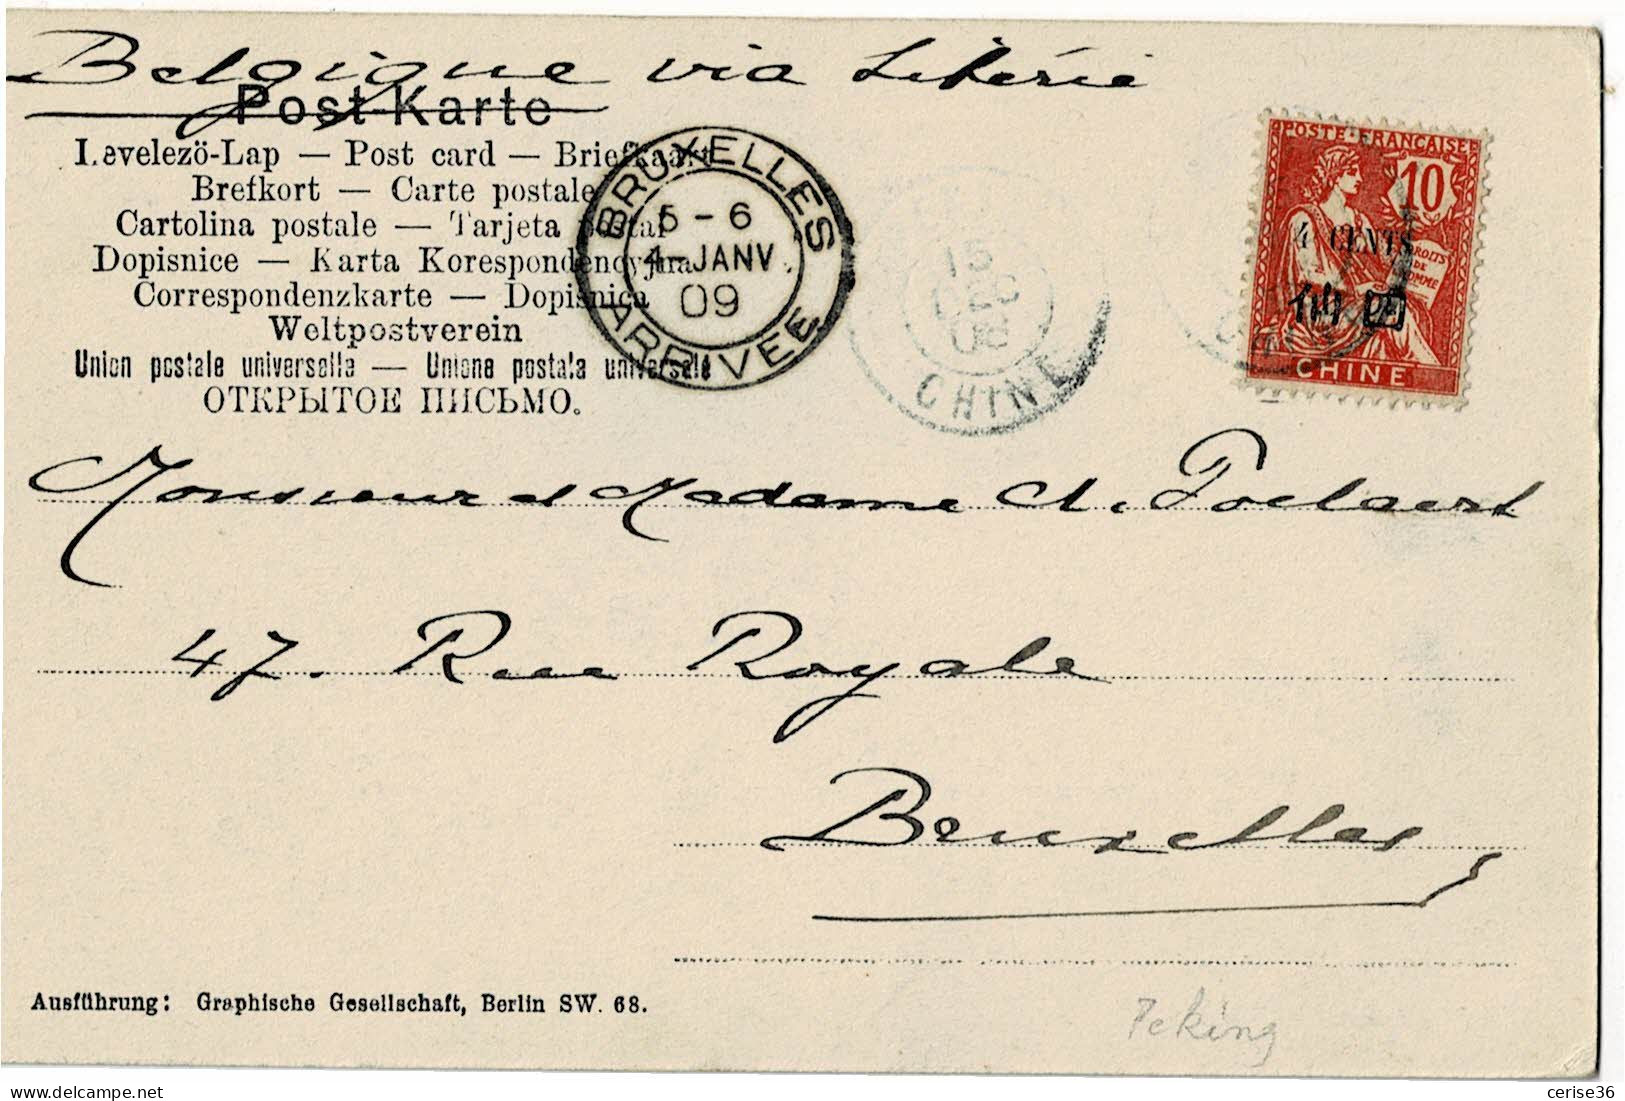 Belgique via Sibérie
Post-Karte
Levelezö-Lap — Post card — Briefkaart
Brefkort — Carte postale
Cartolina postale — Tarjeta postal
Dopisnice — Karta Korespondencyjna
Correspondenzkarte — Dopisnica
Weltpostverein
Union postale universelle — Unione postala universale
ОТКРЫТОЕ ПИСЬМО.
BRUXELLES
5 – 6
4 – JANV.
09
ARRIVEE
15
DEC
08
CHINE
POSTE FRANÇAISE
10
4 CENTS
DROITS
DE
HOMME
仙四
CHINE
Monsieur et Madame A. Poelaert
47. Rue Royale
Bruxelles
Ausführung: Graphische Gesellschaft, Berlin SW. 68.
Peking
cerise36